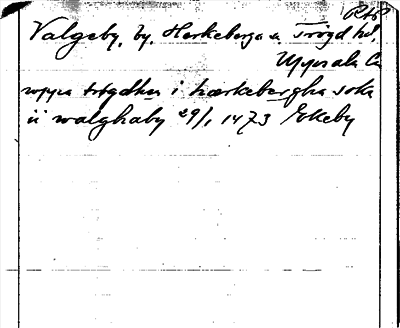 Valgeby, by, Härkeberga s. Trögd hd,
Uppsala län
uppa trögdhen i hærkebergha sokn
ii walghaby 29/1 1473 Ekeby